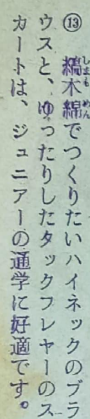 ⑬ 縞木綿でつくりたいハイネックのブラ
ウスと、ゆったりしたタックフレヤーのス
カートは、ジュニアーの通学に好適です。